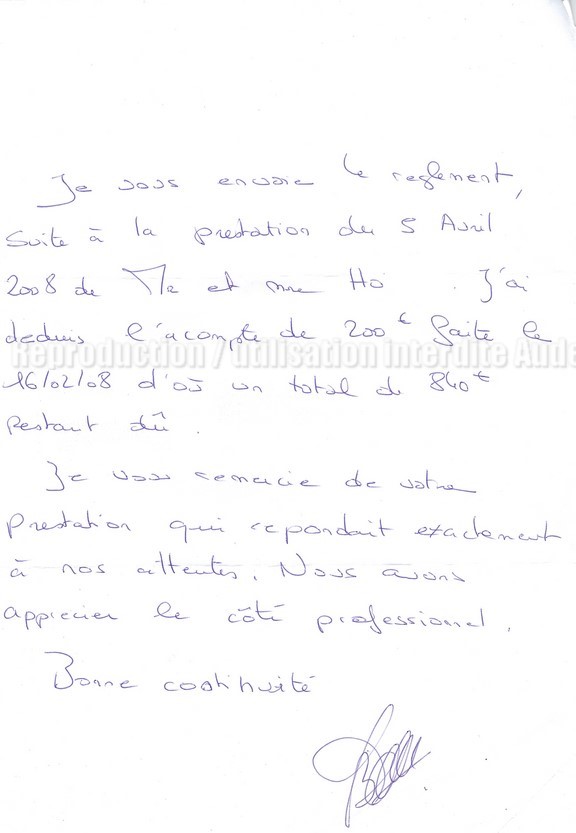 Je vous envoie le reglement,
suite à la prestation du 5 Avril
2008 de Mr et mme Ho . J'ai
deduis l'acompte de 200€ faite le
Reproduction / utilisation interdite Aude
16/02/08 d'où un total de 840€
restant dû.
Je vous remercie de votre
prestation qui repondait exactement
à nos attentes. Nous avons
apprecier le côté professionnel.
Bonne continuité